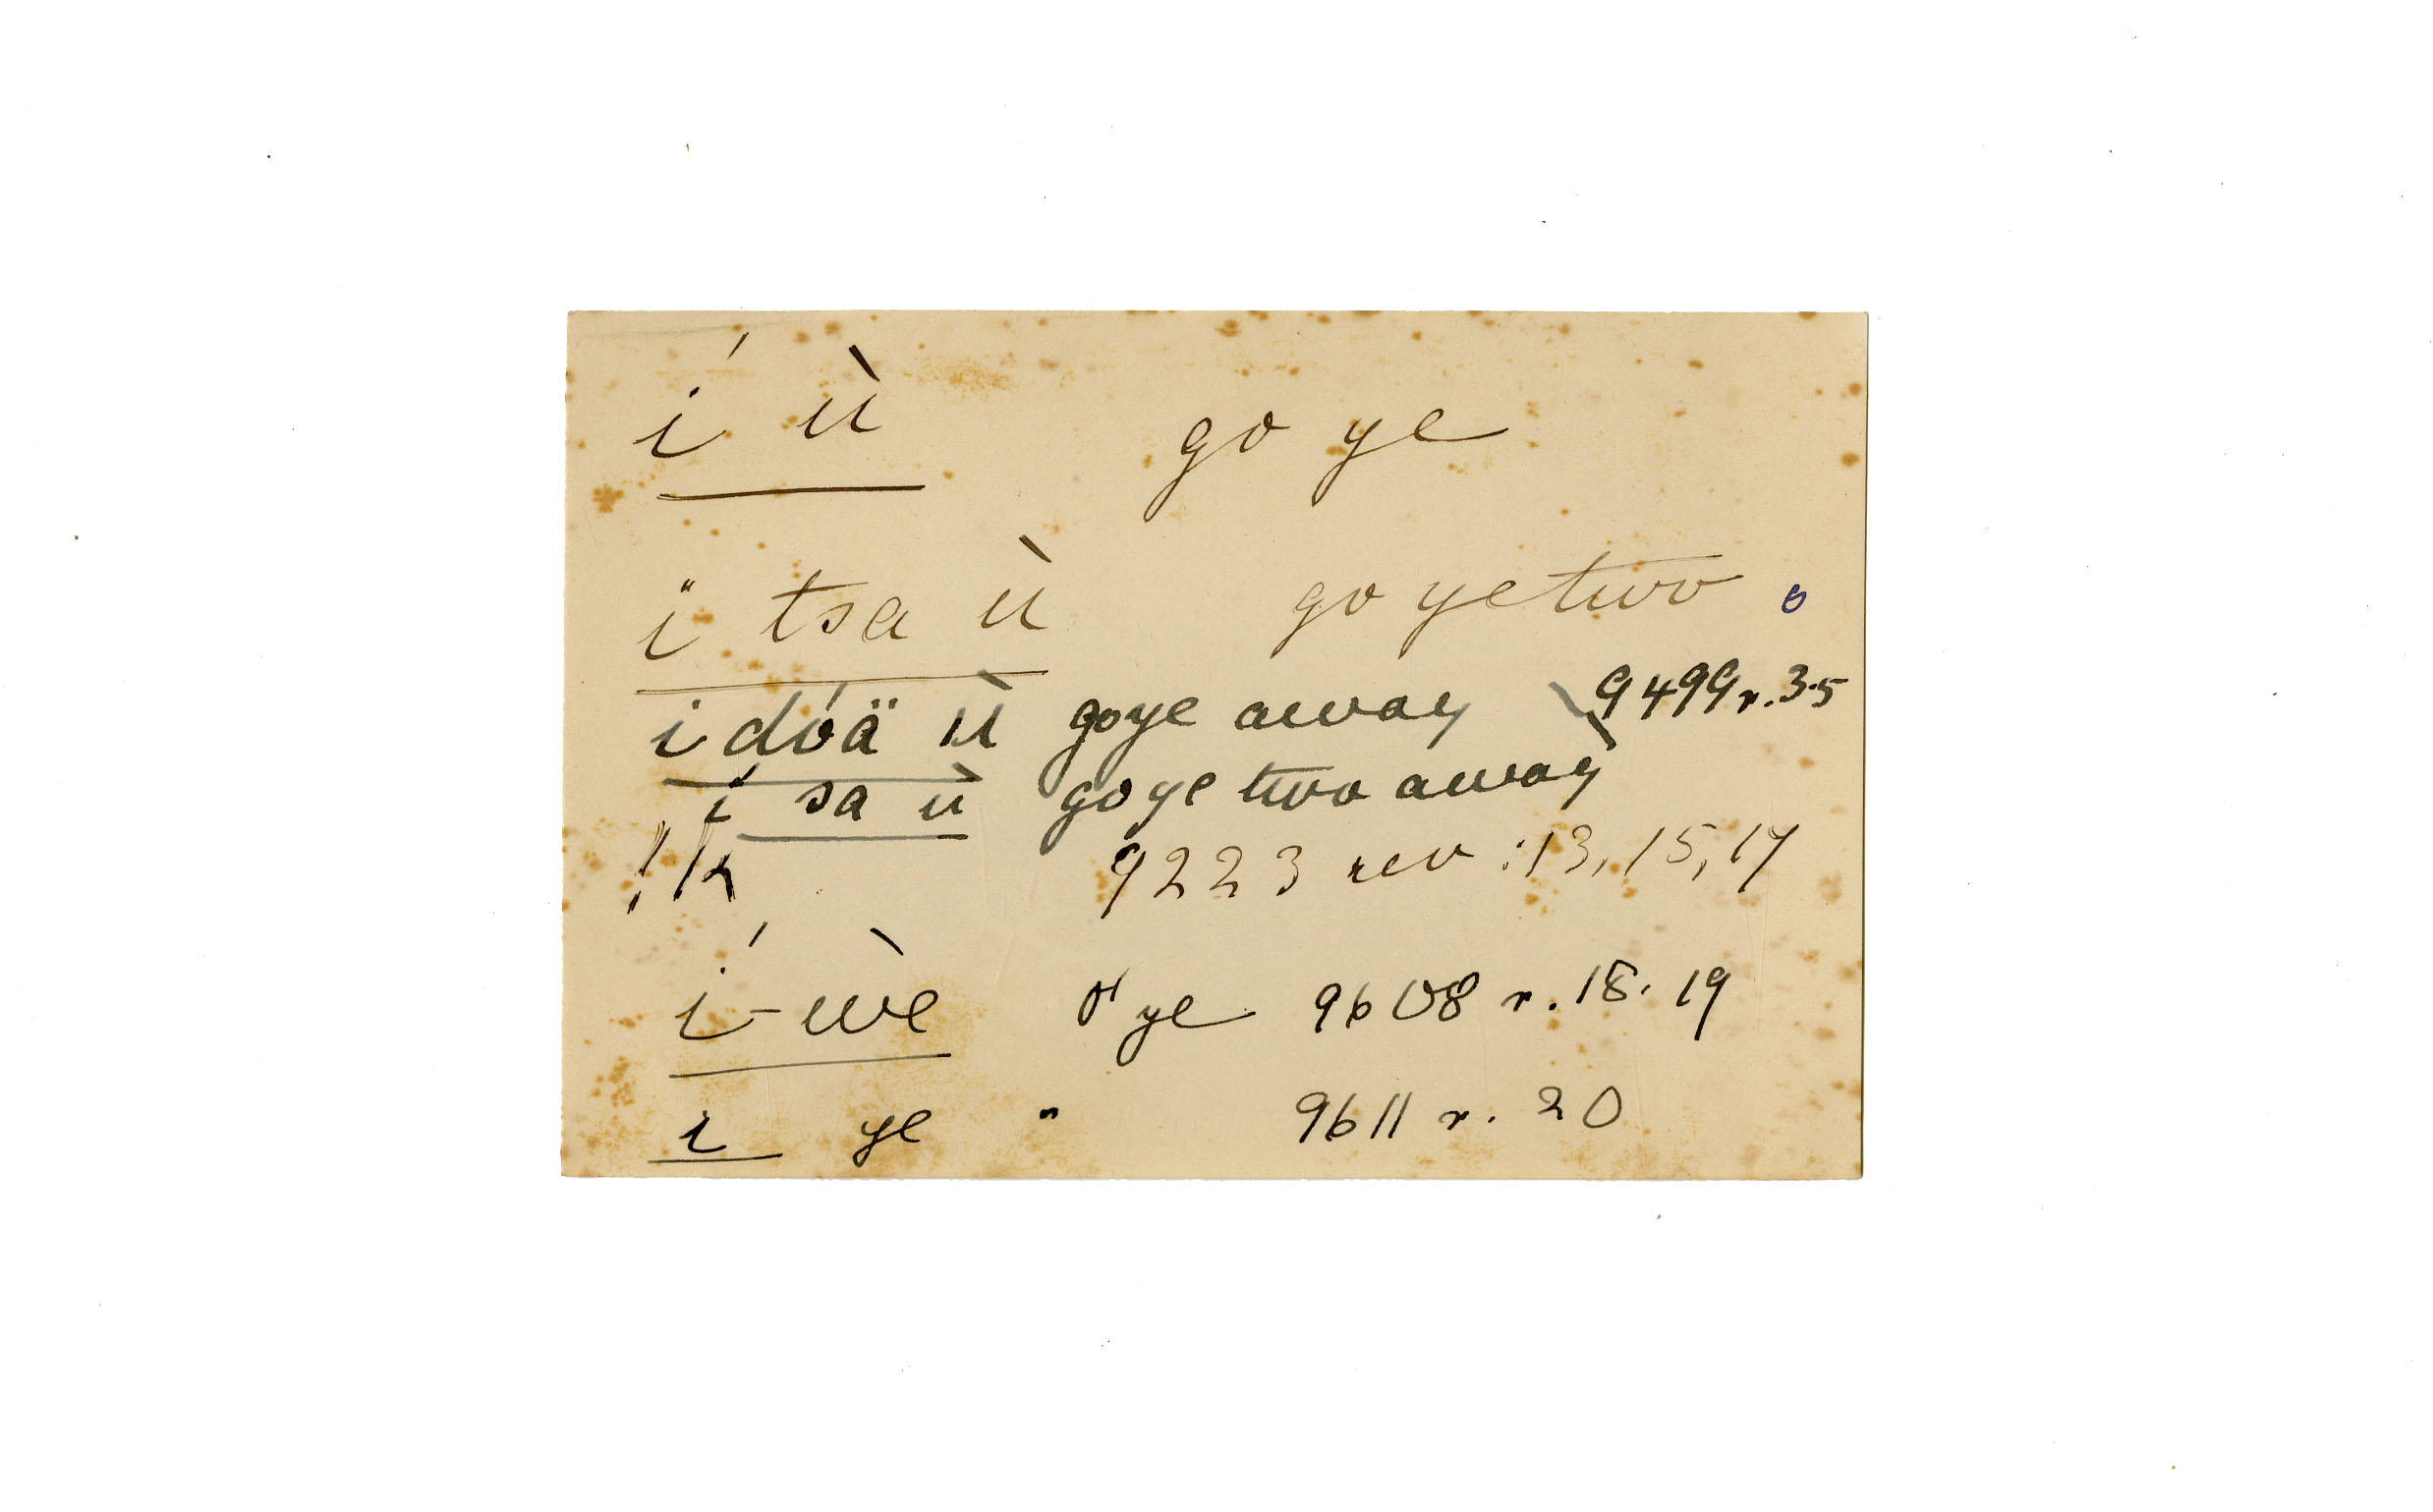 í ù go ye
i tsa ù go ye two
i dóä ù go ye away 9499 r. 3.5
í sa ù go ye two away
9223 rev: 13, 15, 17
í-wè ye 9608 r. 18. 19
i ye " 9611 r. 20